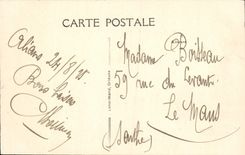 CARTE POSTALE
24/8/25
Bons baisers
Madame Boisseau
59 rue du Levant
Le Mans
(Sarthe)